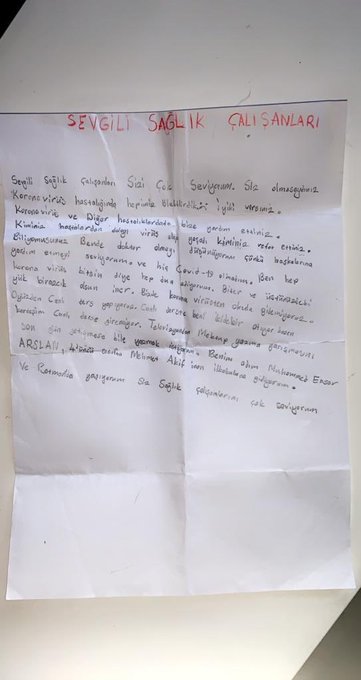 SEVGİLİ SAĞLIK ÇALIŞANLARI
Sevgili Sağlık Çalışanları Sizi Çok Seviyorum. Siz olmasaydınız
Korona virüs hastalığında hepimiz ölebilirdik iyiki varsınız.
Korona virüs ve Diğer hastalıklardada bize yardım ettiniz.
Kiminiz hastalardan dolayı virüs alıp yaşadı kiminiz vefat ettiniz.
Biliyormusunuz Bende doktor olmayı düşünüyorum çünkü başkalarına
yardım etmeyi seviyorum. ve hiç Covid-19 olmadım. Ben hep
korona virüs bitsin diye hep dua ediyorum. Biter ve üstünüzdeki
yük birazcık olsun iner. Bizde korona virüsten okula gidemiyoruz.
O yüzden Canlı ders yapıyoruz. Canlı derste beni bildebilir diyor bazen
kardeşim Canlı derse giremiyor. Televizyondan Mektup yazma yarışmasını
son gün yetişmese bile yazmak istiyorum. Benim adım Muhammed Ensar
ARSLAN, 4'üncü sınıfım Mehmet Akif inan ilkokuluna gidiyorum.
Ve Batmanda yaşıyorum Siz Sağlık çalışanlarını çok seviyorum